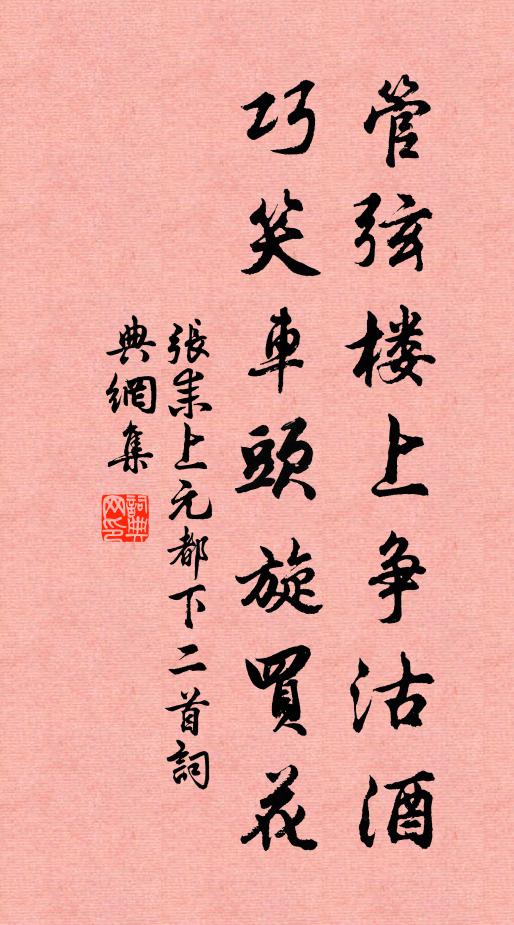 管弦楼上争沽酒
巧笑車頭旋買花
張耒上元都下二首詞
典網集
詞典网印